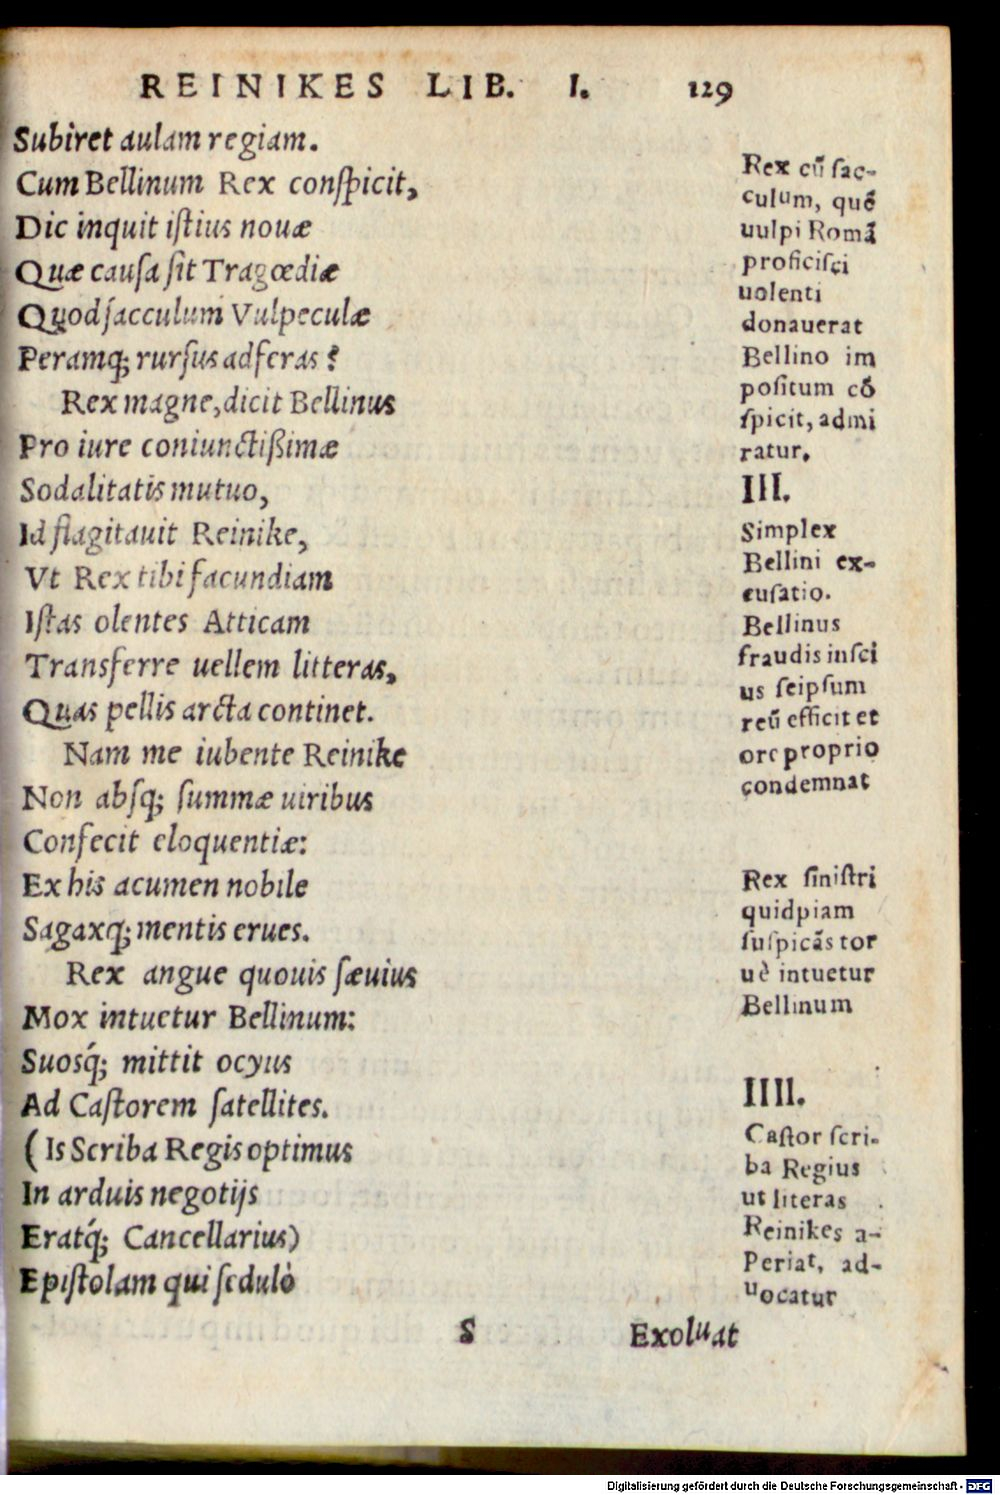 REINIKES LIB. I. 129
Subiret aulam regiam.
Cum Bellinum Rex conſpicit,
Dic inquit iſtius nouæ
Quæ cauſa ſit Tragœdiæ
Quod ſacculum Vulpeculæ
Peramq; rurſus adferas?
Rex magne, dicit Bellinus
Pro iure coniunctißimæ
Sodalitatis mutuo,
Id flagitauit Reinike,
Vt Rex tibi facundiam
Iſtas olentes Atticam
Transferre uellem litteras,
Quas pellis arcta continet.
Nam me iubente Reinike
Non abſq; ſummæ uiribus
Confecit eloquentiæ:
Ex his acumen nobile
Sagaxq; mentis erues.
Rex angue quouis ſæuius
Mox intuetur Bellinum:
Suosq́; mittit ocyus
Ad Caſtorem ſatellites.
( Is Scriba Regis optimus
In arduis negotijs
Eratq́; Cancellarius)
Epiſtolam qui ſedulò
S Exoluat
Rex cū ſac-
culum, quē
uulpi Romā
proficiſci
uolenti
donauerat
Bellino im
poſitum cō
ſpicit, admi
ratur.
III.
Simplex
Bellini ex-
cuſatio.
Bellinus
fraudis inſci
us ſeipſum
reū efficit et
ore proprio
condemnat
Rex ſiniſtri
quidpiam
ſuſpicās tor
uè intuetur
Bellinum
IIII.
Caſtor ſcri-
ba Regius
ut literas
Reinikes a-
Periat, ad-
uocatur
Digitalisierung gefördert durch die Deutsche Forschungsgemeinschaft - DFG